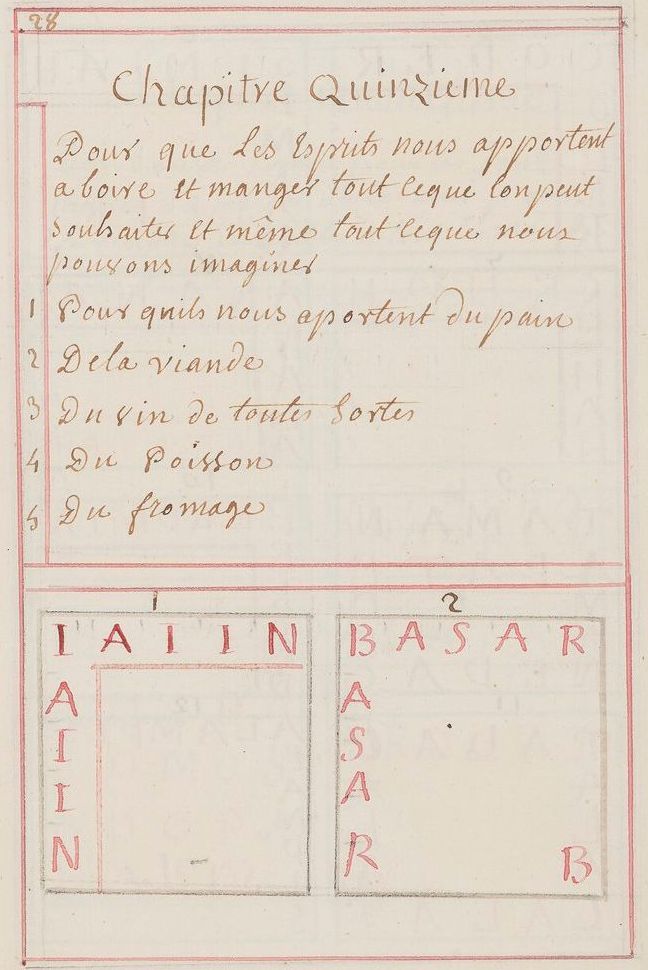 28
Chapitre Quinzieme
Pour que Les Esprits nous apportent
a boire Et manger tout Ceque lonpeut
Souhaiter Et même tout Ceque nous
pouvons imaginer
1 Pour quils nous aportent du pain
2 Dela viande
3 Du vin de toutes Sortes
4 Du Poisson
5 Du fromage
1 2
I A I I N B A S A R
A A
I S
I A
N R B